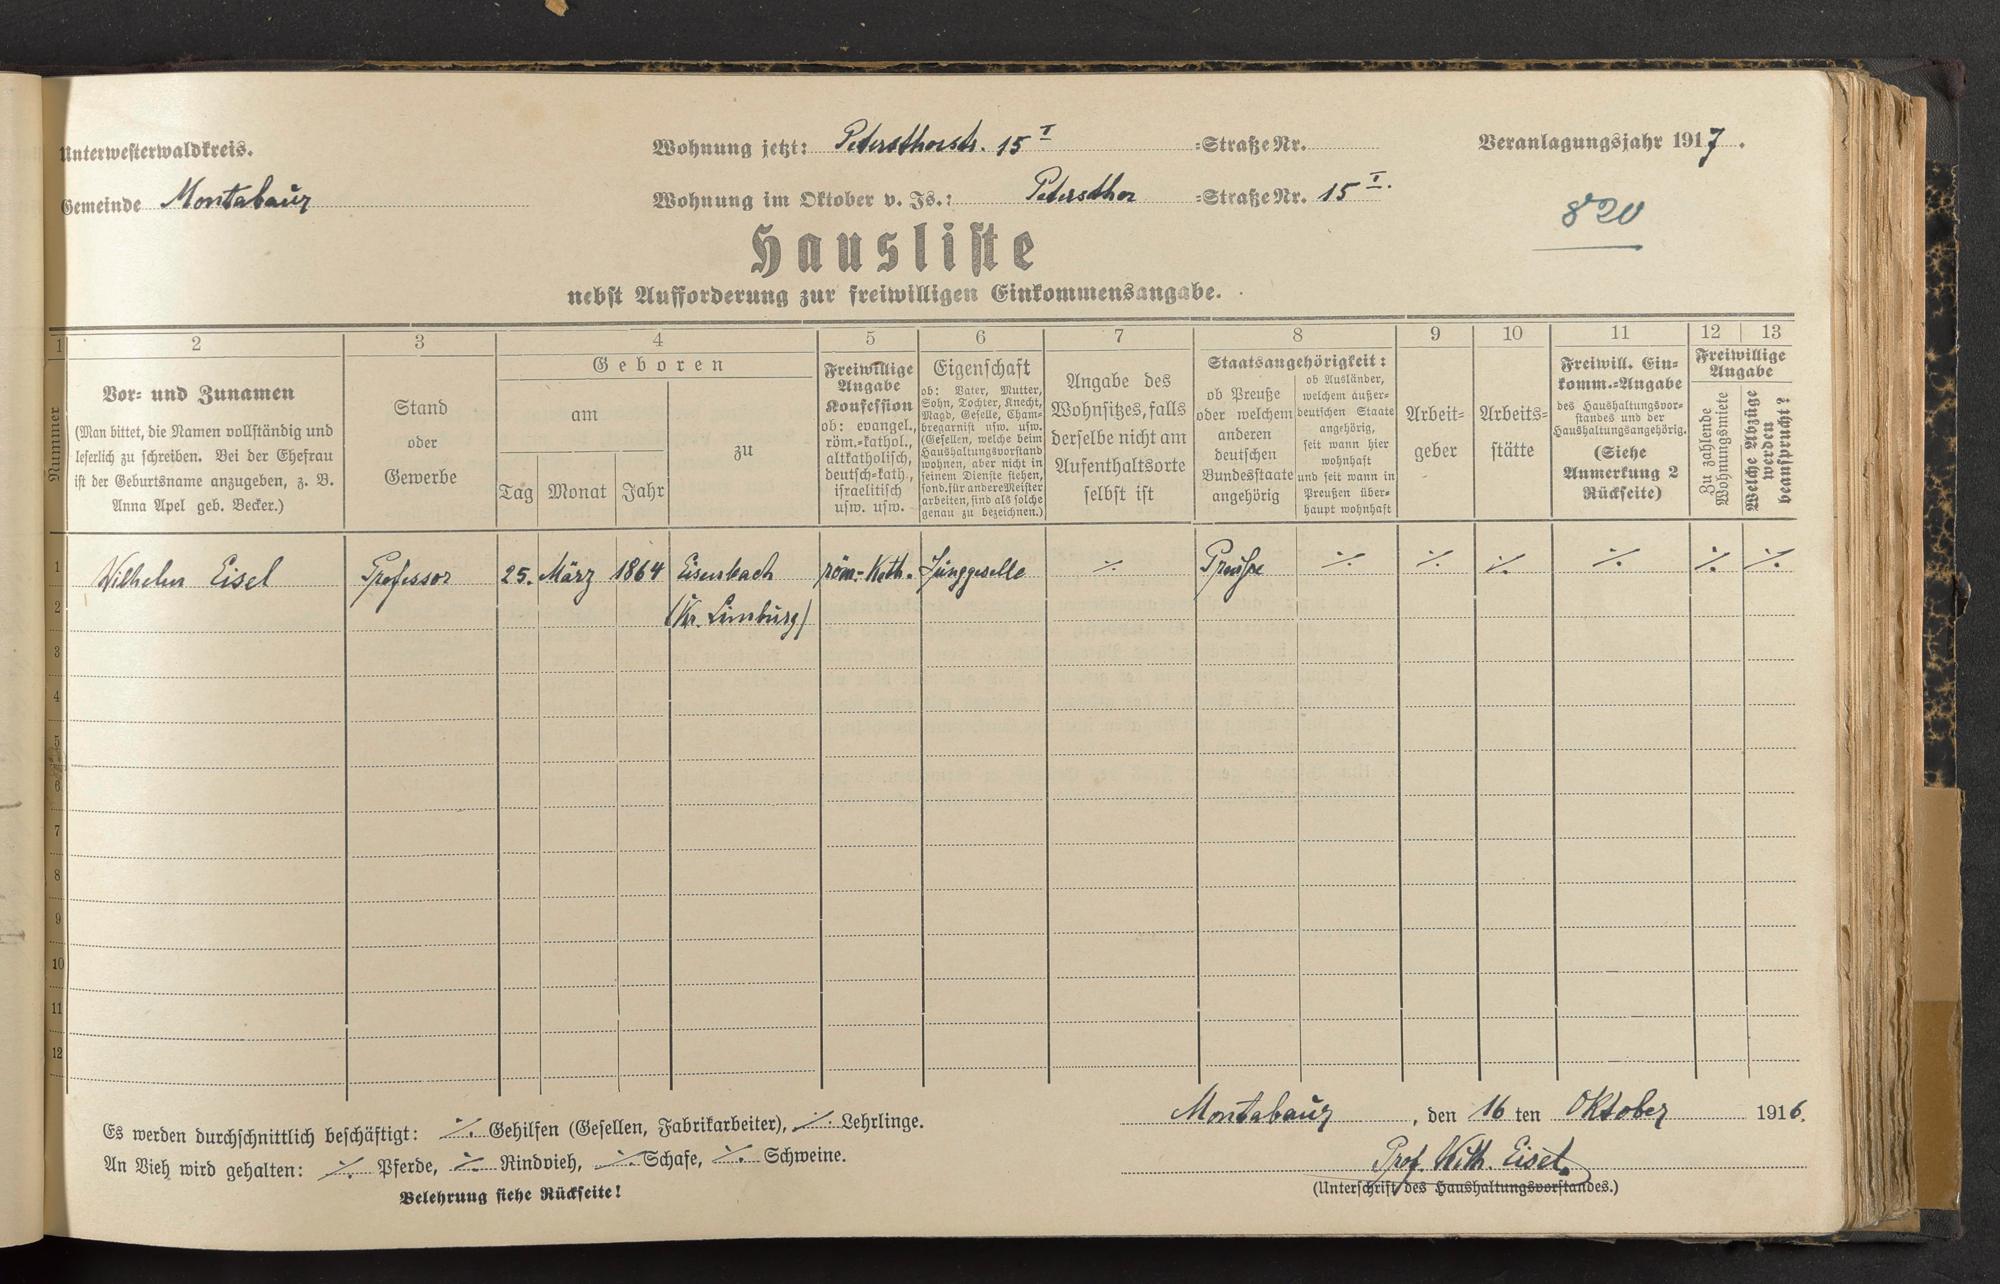 Unterwesterwaldkreis.
Wohnung jetzt: Petersthorstr. 15 I =Straße Nr.
Veranlagungsjahr 1917.
Gemeinde Montabaur
Wohnung im Oktober v. Js.: Petersthor =Straße Nr. 15 I.
820
Hausliste
nebst Aufforderung zur freiwilligen Einkommensangabe.
1 2 3 4 5 6 7 8 9 10 11 12 13
Nummer
Vor= und Zunamen
(Man bittet, die Namen vollständig und
leserlich zu schreiben. Bei der Ehefrau
ist der Geburtsname anzugeben, z. B.
Anna Apel geb. Becker.)
Stand
oder
Gewerbe
Geboren
am
Tag Monat Jahr
zu
Freiwillige
Angabe
Konfession
ob: evangel.,
röm.=kathol.,
altkatholisch,
deutsch=kath.,
israelitisch
usw. usw.
Eigenschaft
ob: Vater, Mutter,
Sohn, Tochter, Knecht,
Magd, Geselle, Cham=
bregarnist usw. usw.
(Gesellen, welche beim
Haushaltungsvorstand
wohnen, aber nicht in
seinem Dienste stehen,
sond. für andere Meister
arbeiten, sind als solche
genau zu bezeichnen.)
Angabe des
Wohnsitzes, falls
derselbe nicht am
Aufenthaltsorte
selbst ist
Staatsangehörigkeit:
ob Preuße
oder welchem
anderen
deutschen
Bundesstaate
angehörig
ob Ausländer,
welchem außer=
deutschen Staate
angehörig,
seit wann hier
wohnhaft
und seit wann in
Preußen über=
haupt wohnhaft
Arbeit=
geber
Arbeits=
stätte
Freiwill. Ein=
komm.=Angabe
des Haushaltungsvor=
standes und der
Haushaltungsangehörig.
(Siehe
Anmerkung 2
Rückseite)
Freiwillige
Angabe
Zu zahlende
Wohnungsmiete
Welche Abzüge
werden
beansprucht?
1 Wilhelm Eisel Professor 25. März 1864 Eisenbach röm.-Kath. Junggeselle ·/. Preuße ·/. ·/. ·/. ·/. ·/. ·/.
2 (Kr. Limburg)
3
4
5
6
7
8
9
10
11
12
Es werden durchschnittlich beschäftigt: ·/. Gehilfen (Gesellen, Fabrikarbeiter), ·/. Lehrlinge.
An Vieh wird gehalten: ·/. Pferde, ·/. Rindvieh, ·/. Schafe, ·/. Schweine.
Belehrung siehe Rückseite!
Montabaur, den 16 ten Oktober 1916.
Prof. Wilh. Eisel.
(Unterschrift des Haushaltungsvorstandes.)